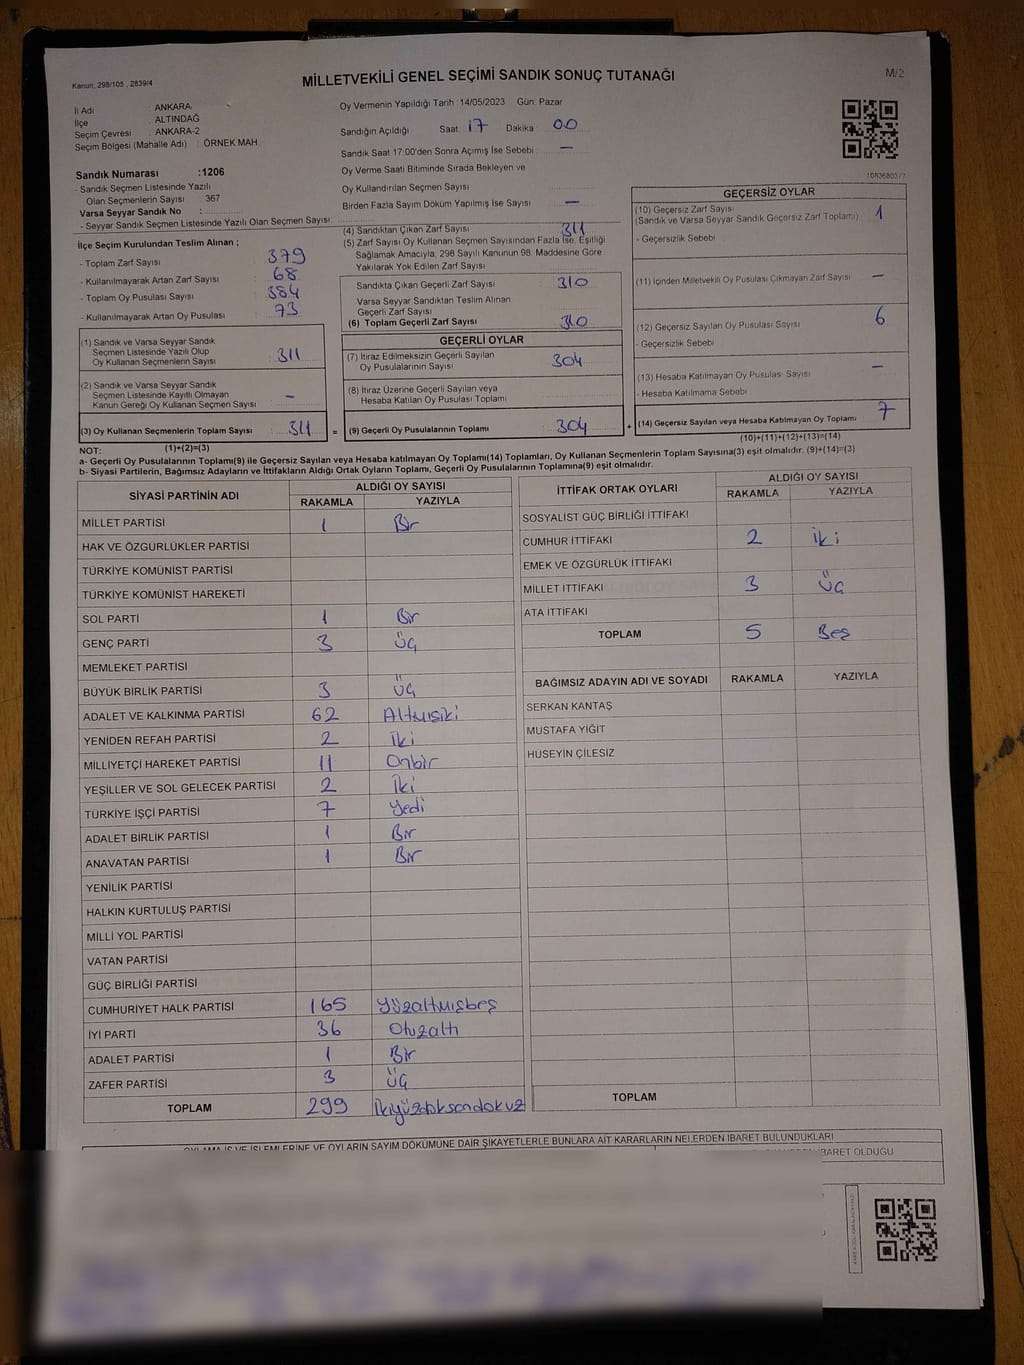 Kanun, 298/105 , 2839/4
MİLLETVEKİLİ GENEL SEÇİMİ SANDIK SONUÇ TUTANAĞI
M/2
İl Adı : ANKARA
İlçe : ALTINDAĞ
Seçim Çevresi : ANKARA-2
Seçim Bölgesi (Mahalle Adı) : ÖRNEK MAH.
Oy Vermenin Yapıldığı Tarih :14/05/2023 Gün: Pazar
Sandığın Açıldığı Saat: 17 Dakika : 00
Sandık Saat 17:00'den Sonra Açılmış İse Sebebi : —
Oy Verme Saati Bitiminde Sırada Bekleyen ve
Oy Kullandırılan Seçmen Sayısı
Birden Fazla Sayım Döküm Yapılmış İse Sayısı : —
Sandık Numarası :1206
- Sandık Seçmen Listesinde Yazılı
Olan Seçmenlerin Sayısı : 367
Varsa Seyyar Sandık No :
- Seyyar Sandık Seçmen Listesinde Yazılı Olan Seçmen Sayısı:
İlçe Seçim Kurulundan Teslim Alınan ;
- Toplam Zarf Sayısı : 379
- Kullanılmayarak Artan Zarf Sayısı : 68
- Toplam Oy Pusulası Sayısı : 384
- Kullanılmayarak Artan Oy Pusulası : 73
(1) Sandık ve Varsa Seyyar Sandık
Seçmen Listesinde Yazılı Olup
Oy Kullanan Seçmenlerin Sayısı : 311
(2) Sandık ve Varsa Seyyar Sandık
Seçmen Listesinde Kayıtlı Olmayan
Kanun Gereği Oy Kullanan Seçmen Sayısı : -
(3) Oy Kullanan Seçmenlerin Toplam Sayısı : 311
(4) Sandıktan Çıkan Zarf Sayısı : 311
(5) Zarf Sayısı Oy Kullanan Seçmen Sayısından Fazla İse, Eşitliği
Sağlamak Amacıyla, 298 Sayılı Kanunun 98. Maddesine Göre
Yakılarak Yok Edilen Zarf Sayısı :
Sandıkta Çıkan Geçerli Zarf Sayısı : 310
Varsa Seyyar Sandıktan Teslim Alınan
Geçerli Zarf Sayısı :
(6) Toplam Geçerli Zarf Sayısı : 310
GEÇERLİ OYLAR
(7) İtiraz Edilmeksizin Geçerli Sayılan
Oy Pusulalarının Sayısı : 304
(8) İtiraz Üzerine Geçerli Sayılan veya
Hesaba Katılan Oy Pusulası Toplamı :
= (9) Geçerli Oy Pusulalarının Toplamı : 304
1083680377
GEÇERSİZ OYLAR
(10) Geçersiz Zarf Sayısı
(Sandık ve Varsa Seyyar Sandık Geçersiz Zarf Toplamı) : 1
- Geçersizlik Sebebi :
(11) İçinden Milletvekili Oy Pusulası Çıkmayan Zarf Sayısı : —
(12) Geçersiz Sayılan Oy Pusulası Sayısı : 6
- Geçersizlik Sebebi :
(13) Hesaba Katılmayan Oy Pusulası Sayısı : —
- Hesaba Katılmama Sebebi :
+ (14) Geçersiz Sayılan veya Hesaba Katılmayan Oy Toplamı : 7
NOT: (1)+(2)=(3)
(10)+(11)+(12)+(13)=(14)
a- Geçerli Oy Pusulalarının Toplamı(9) ile Geçersiz Sayılan veya Hesaba katılmayan Oy Toplamı(14) Toplamları, Oy Kullanan Seçmenlerin Toplam Sayısına(3) eşit olmalıdır. (9)+(14)=(3)
b- Siyasi Partilerin, Bağımsız Adayların ve İttifakların Aldığı Ortak Oyların Toplamı, Geçerli Oy Pusulalarının Toplamına(9) eşit olmalıdır.
SİYASİ PARTİNİN ADI
ALDIĞI OY SAYISI
RAKAMLA YAZIYLA
MİLLET PARTİSİ 1 Bir
HAK VE ÖZGÜRLÜKLER PARTİSİ
TÜRKİYE KOMÜNİST PARTİSİ
TÜRKİYE KOMÜNİST HAREKETİ
SOL PARTİ 1 Bir
GENÇ PARTİ 3 Üç
MEMLEKET PARTİSİ
BÜYÜK BİRLİK PARTİSİ 3 Üç
ADALET VE KALKINMA PARTİSİ 62 Altmışiki
YENİDEN REFAH PARTİSİ 2 İki
MİLLİYETÇİ HAREKET PARTİSİ 11 Onbir
YEŞİLLER VE SOL GELECEK PARTİSİ 2 İki
TÜRKİYE İŞÇİ PARTİSİ 7 Yedi
ADALET BİRLİK PARTİSİ 1 Bir
ANAVATAN PARTİSİ 1 Bir
YENİLİK PARTİSİ
HALKIN KURTULUŞ PARTİSİ
MİLLİ YOL PARTİSİ
VATAN PARTİSİ
GÜÇ BİRLİĞİ PARTİSİ
CUMHURİYET HALK PARTİSİ 165 Yüzaltmışbeş
İYİ PARTİ 36 Otuzaltı
ADALET PARTİSİ 1 Bir
ZAFER PARTİSİ 3 Üç
TOPLAM 299 İkiyüzdoksandokuz
İTTİFAK ORTAK OYLARI
ALDIĞI OY SAYISI
RAKAMLA YAZIYLA
SOSYALİST GÜÇ BİRLİĞİ İTTİFAKI
CUMHUR İTTİFAKI 2 İki
EMEK VE ÖZGÜRLÜK İTTİFAKI
MİLLET İTTİFAKI 3 Üç
ATA İTTİFAKI
TOPLAM 5 Beş
BAĞIMSIZ ADAYIN ADI VE SOYADI RAKAMLA YAZIYLA
SERKAN KANTAŞ
MUSTAFA YİĞİT
HÜSEYİN ÇİLESİZ
TOPLAM
OYLAMA İŞ VE İŞLEMLERİNE VE OYLARIN SAYIM DÖKÜMÜNE DAİR ŞİKAYETLERLE BUNLARA AİT KARARLARIN NELERDEN İBARET BULUNDUKLARI
İBARET OLDUĞU